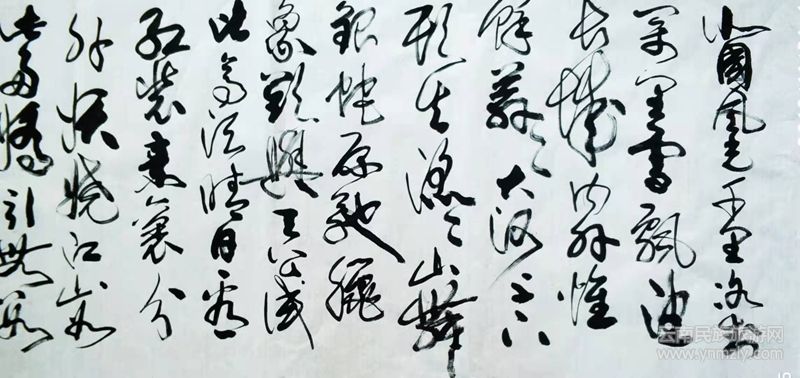 北國風光千里冰封
萬里雪飄望
长城内外惟
餘莽莽大河上下
頓失滔滔山舞
銀蛇原馳臘
象欲與天公试
比高须晴日看
红装素裹分
外妖娆江山如
此多嬌引無数
云南民族旅游网
www.ynmzly.com